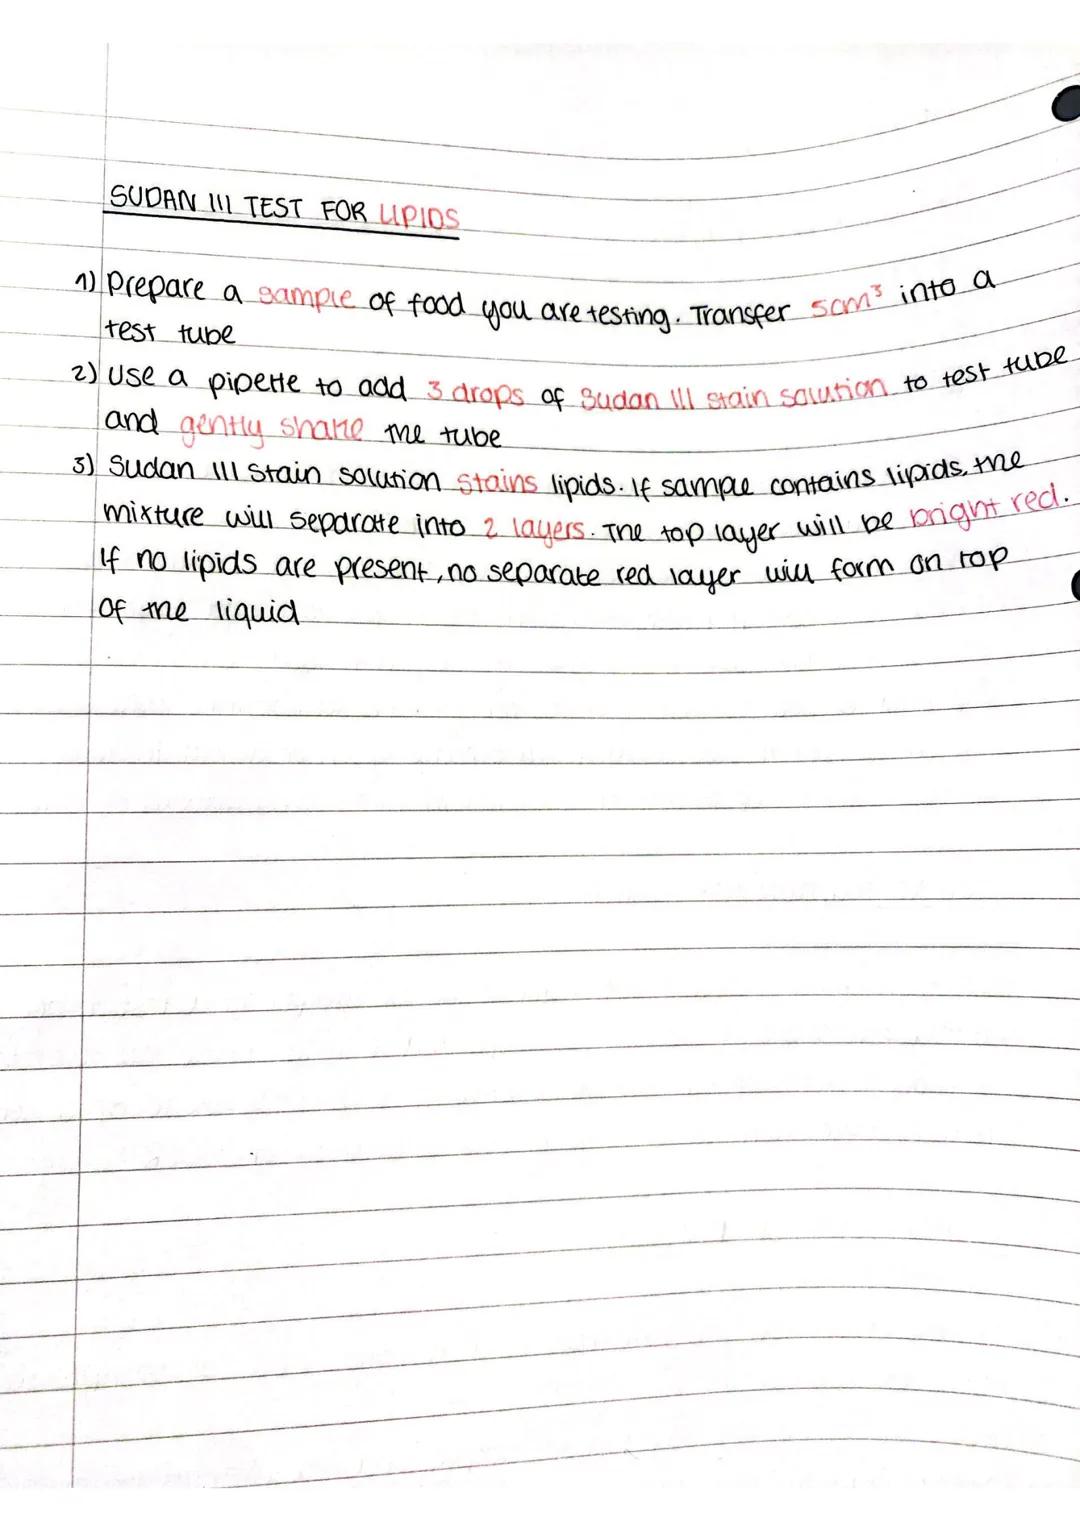 SUDAN III TEST FOR LIPIDS
1) Prepare a sample of food you are testing. Transfer 5cm³ into a
test tube
2) Use a pipette to add 3 drops of Sudan III stain solution to test tube
and gently shake the tube
3) Sudan III stain solution stains lipids. If sample contains lipids, the
mixture will separate into 2 layers. The top layer will be bright red.
If no lipids are present, no separate red layer will form on top
of the liquid